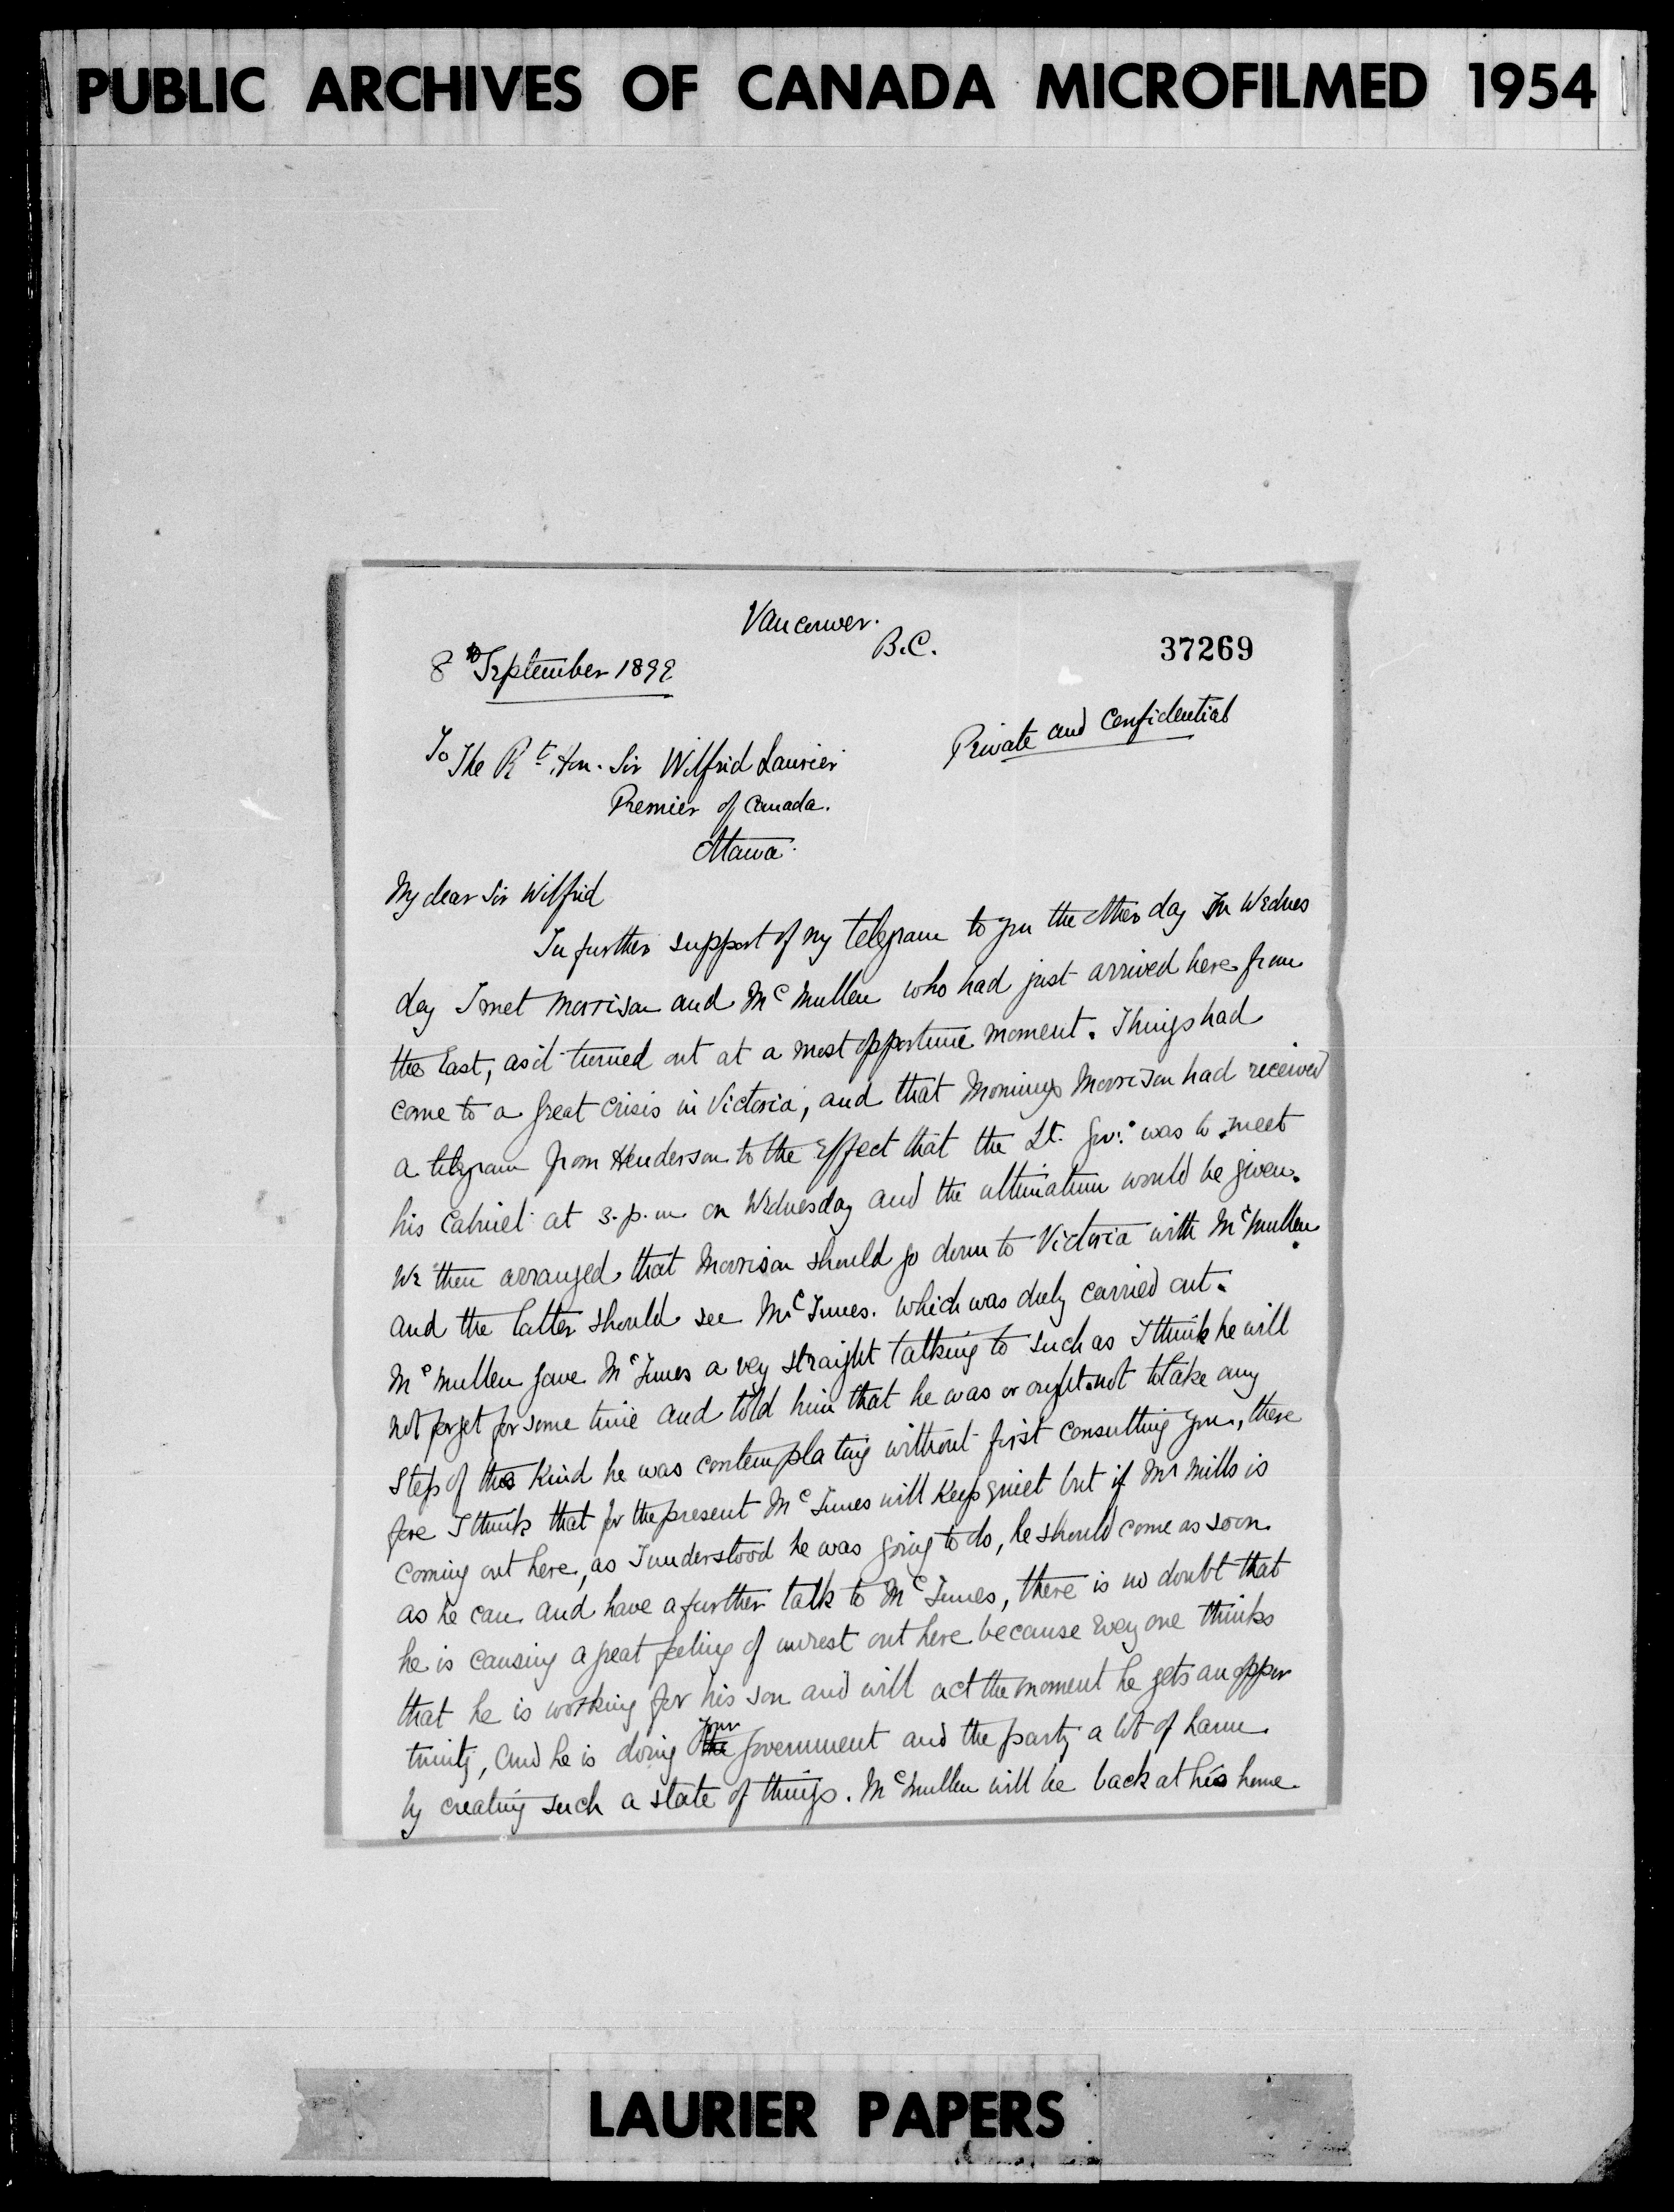 PUBLIC ARCHIVES OF CANADA MICROFILMED 1954
Vancouver.
B.C.
37269
8th September 1899
Private and Confidential
To The Rt. Hon. Sir Wilfrid Laurier
Premier of Canada.
Ottawa.
My dear Sir Wilfrid
In further support of my telegram to you the other day on Wednes
day I met Morrison and McMullen who had just arrived here from
the East, as it turned out at a most opportune moment. Things had
come to a great crisis in Victoria, and that morning Morrison had received
a telegram from Henderson to the effect that the Lt. Gov. was to meet
his Cabinet at 3. p.m. on Wednesday and the ultimatum would be given.
We then arranged that Morrison should go down to Victoria with McMullen
and the latter should see McInnes. which was duly carried out.
McMullen gave McInnes a very straight talking to such as I think he will
not forget for some time and told him that he was or ought not to take any
step of the kind he was contemplating without first consulting you, there
fore I think that for the present McInnes will keep quiet but if Mr Mills is
coming out here, as I understood he was going to do, he should come as soon
as he can and have a further talk to McInnes, there is no doubt that
he is causing a great feeling of unrest out here because every one thinks
that he is working for his son and will act the moment he gets an oppor
tunity, and he is doing your government and the party a lot of harm
by creating such a state of things. McMullen will be back at his home
LAURIER PAPERS